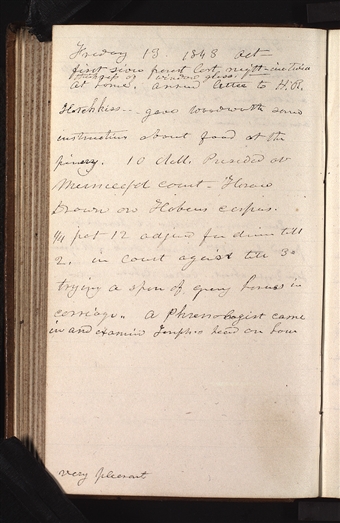 Friday 13 1843 Oct—
first severe frost last night—ice twice
thickness of window glass.
at home. answd letter to H.R.
Hotchkiss— gave woodworth some
instruction about food at the
pinery. 10 dell. Presided at
Municipl court— Horace
Brown on Habeus corpus.
1/4 past 12 adjnd for dinner till
2. in court against till 3—
trying a span of grey horses in
carriage. A Phrenologist came
in and examin Joseph's head an hour
very pleasant